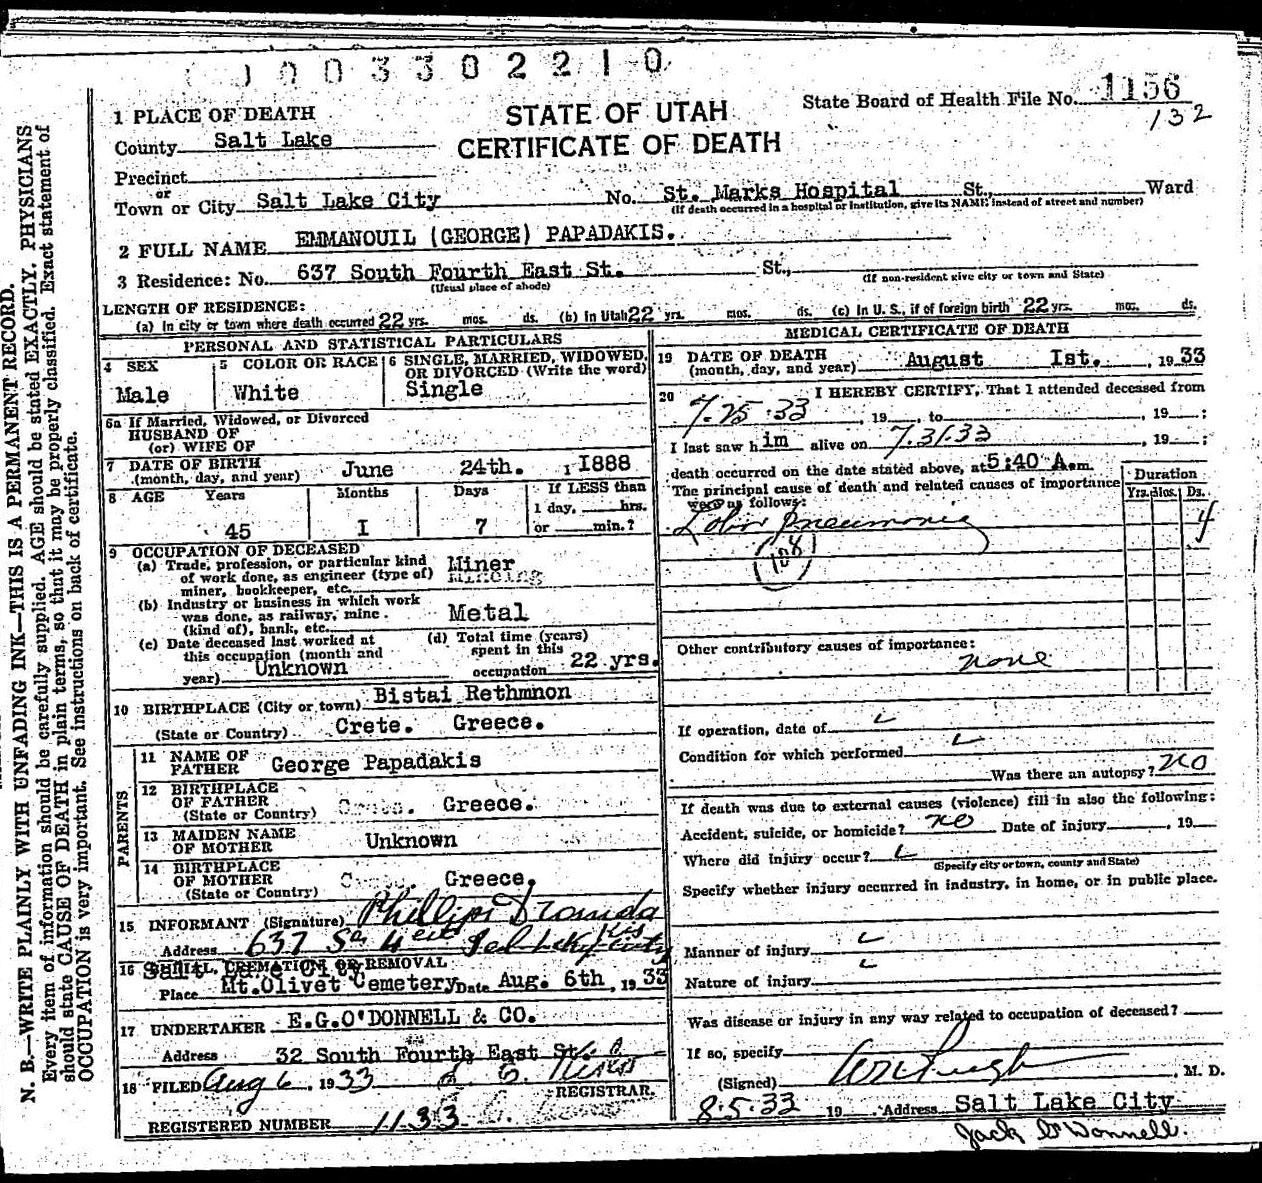 1003302210
1 PLACE OF DEATH
STATE OF UTAH
State Board of Health File No. 1156
132
County Salt Lake
CERTIFICATE OF DEATH
Precinct
or
Town or City Salt Lake City No. St. Marks Hospital St., Ward
(If death occurred in a hospital or institution, give its NAME instead of street and number)
2 FULL NAME EMMANOUIL (GEORGE) PAPADAKIS.
3 Residence: No. 637 South Fourth East St. St.,
(Usual place of abode) (If non-resident give city or town and State)
LENGTH OF RESIDENCE:
(a) In city or town where death occurred 22 yrs. mos. ds. (b) In Utah 22 yrs. mos. ds. (c) In U. S., if of foreign birth 22 yrs. mos. ds.
PERSONAL AND STATISTICAL PARTICULARS
4 SEX
Male
5 COLOR OR RACE
White
6 SINGLE, MARRIED, WIDOWED, OR DIVORCED (Write the word)
Single
6a If Married, Widowed, or Divorced
HUSBAND OF
(or) WIFE OF
7 DATE OF BIRTH
(month, day, and year) June 24th. 1 1888
8 AGE Years Months Days If LESS than
1 day, hrs.
45 I 7 or min.?
9 OCCUPATION OF DECEASED
(a) Trade, profession, or particular kind
of work done, as engineer (type of)
miner, bookkeeper, etc. Miner
(b) Industry or business in which work
was done, as railway, mine
(kind of), bank, etc. Metal
(c) Date deceased last worked at
this occupation (month and
year) Unknown
(d) Total time (years)
spent in this
occupation 22 yrs.
10 BIRTHPLACE (City or town) Bistai Rethmnon
(State or Country) Crete. Greece.
PARENTS
11 NAME OF
FATHER George Papadakis
12 BIRTHPLACE
OF FATHER
(State or Country) Greece.
13 MAIDEN NAME
OF MOTHER Unknown
14 BIRTHPLACE
OF MOTHER
(State or Country) Greece.
15 INFORMANT (Signature) Phillip
Address 637 So 4 East
Salt Lake City
16 BURIAL, CREMATION OR REMOVAL
Place Mt. Olivet Cemetery Date Aug. 6th, 1933
17 UNDERTAKER E.G.O'DONNELL & CO.
Address 32 South Fourth East St.
18 FILED Aug 6, 1933
REGISTRAR.
REGISTERED NUMBER 1133
MEDICAL CERTIFICATE OF DEATH
19 DATE OF DEATH
(month, day, and year) August Ist. , 1933
20 I HEREBY CERTIFY, That I attended deceased from
7.25.33 , 19 , to , 19 ;
I last saw him alive on 7.31.33 , 19 ;
death occurred on the date stated above, at 5:40 A.m.
The principal cause of death and related causes of importance
were as follows:
Duration
Yrs. Mos. Ds.
Lobar Pneumonia 4
108
Other contributory causes of importance:
none
If operation, date of
Condition for which performed
Was there an autopsy? no
If death was due to external causes (violence) fill in also the following:
Accident, suicide, or homicide? no Date of injury , 19
Where did injury occur?
(Specify city or town, county and State)
Specify whether injury occurred in industry, in home, or in public place.
Manner of injury
Nature of injury
Was disease or injury in any way related to occupation of deceased?
If so, specify
(Signed) , M. D.
8.5.33 19 Address Salt Lake City
Jack O'Donnell.
N. B.—WRITE PLAINLY WITH UNFADING INK—THIS IS A PERMANENT RECORD.
Every item of information should be carefully supplied. AGE should be stated EXACTLY. PHYSICIANS
should state CAUSE OF DEATH in plain terms, so that it may be properly classified. Exact statement of
OCCUPATION is very important. See instructions on back of certificate.